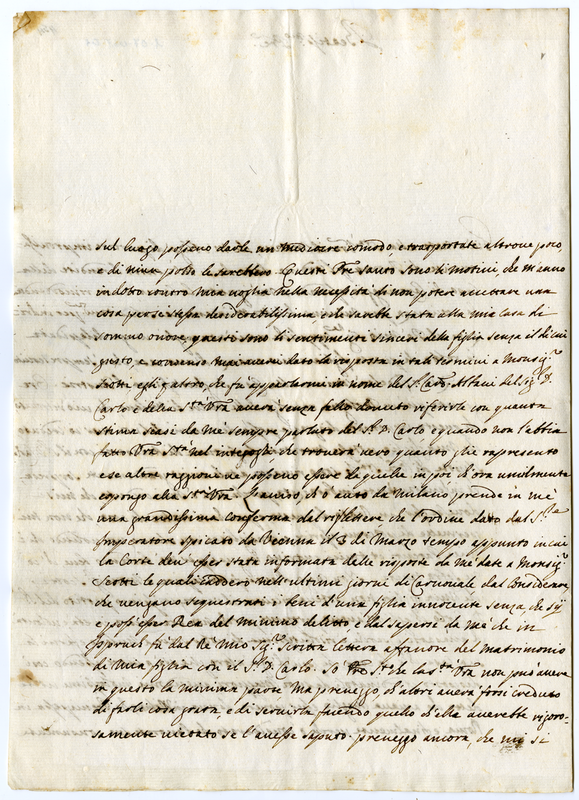 sul luogo possono darle un mediocre comodo, e trasportate altrove poco,
e di niun peso le sarebbero. Questi Pre santo sono li motivi, che m'anno
indotto contro mia voglia nella necessità di non potere accettare una
cosa per se stessa desiderabilissima e che sarebbe stata alla mia casa di
sommo onore, questi sono li sentimenti sinceri della figlia senza il di cui
gusto, e consenso avendo dato la risposta in tali termini a Monsigr
Scotti egli fu, che fu a parlarmi in nome del Sr Card. Albani del Sigr D.
Carlo e della Sta Vra averà senza fallo dovuto riferirle con quanta
stima siasi da me sempre parlato del Sr D. Carlo e quando non l'abbia
fatto Vra Stà nel interpelli che troverà vero quanto gli rapresento
e se altre raggioni ne possono essere da quelle in poi di ora umilmente
espongo alla Stà Vra. L'avviso, di è auto da Milano prende in me
una grandissima conferma dal riflettere che l'ordine dato dal Sr
Imperatore spiccato da Vienna il 3 di Marzo tempo appunto in cui
la Corte deve esser stata informata delle risposte da me date a Monsigr
Scotti le quali caddero nell'ultimi giorni di Carnovale dal considerare
che vengano sequestrati i beni d'una figlia innocente senza, che sij
e possi esser Rea del minimo delitto e dal sapersi da me che in
fu dal Rè Mio Sigr scritta lettera a favore del matrimonio
di mia figlia con il Sr D. Carlo. Sò Pre Sto che la Stà Vra non può avere
in questo la minima parte ma preveggo, ch'altri averà forsi creduto
di farli cosa grata, e di servirla facendo quello ch'ella averebbe rigoro-
samente vietato se l'avesse saputo. preveggo ancora, che mi si